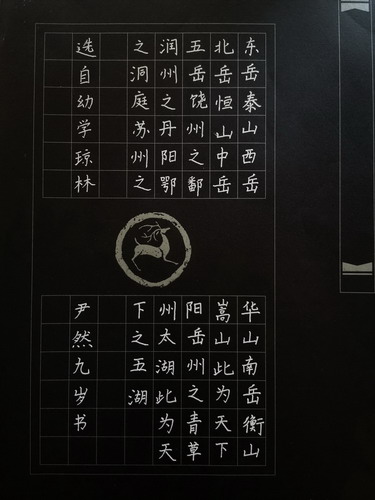 东岳泰山西岳
华山南岳衡山
北岳恒山中岳
嵩山此为天下
五岳饶州之鄱
阳岳州之青草
润州之丹阳鄂
州太湖此为天
之洞庭苏州之
下之五湖
选自幼学琼林
尹然九岁书